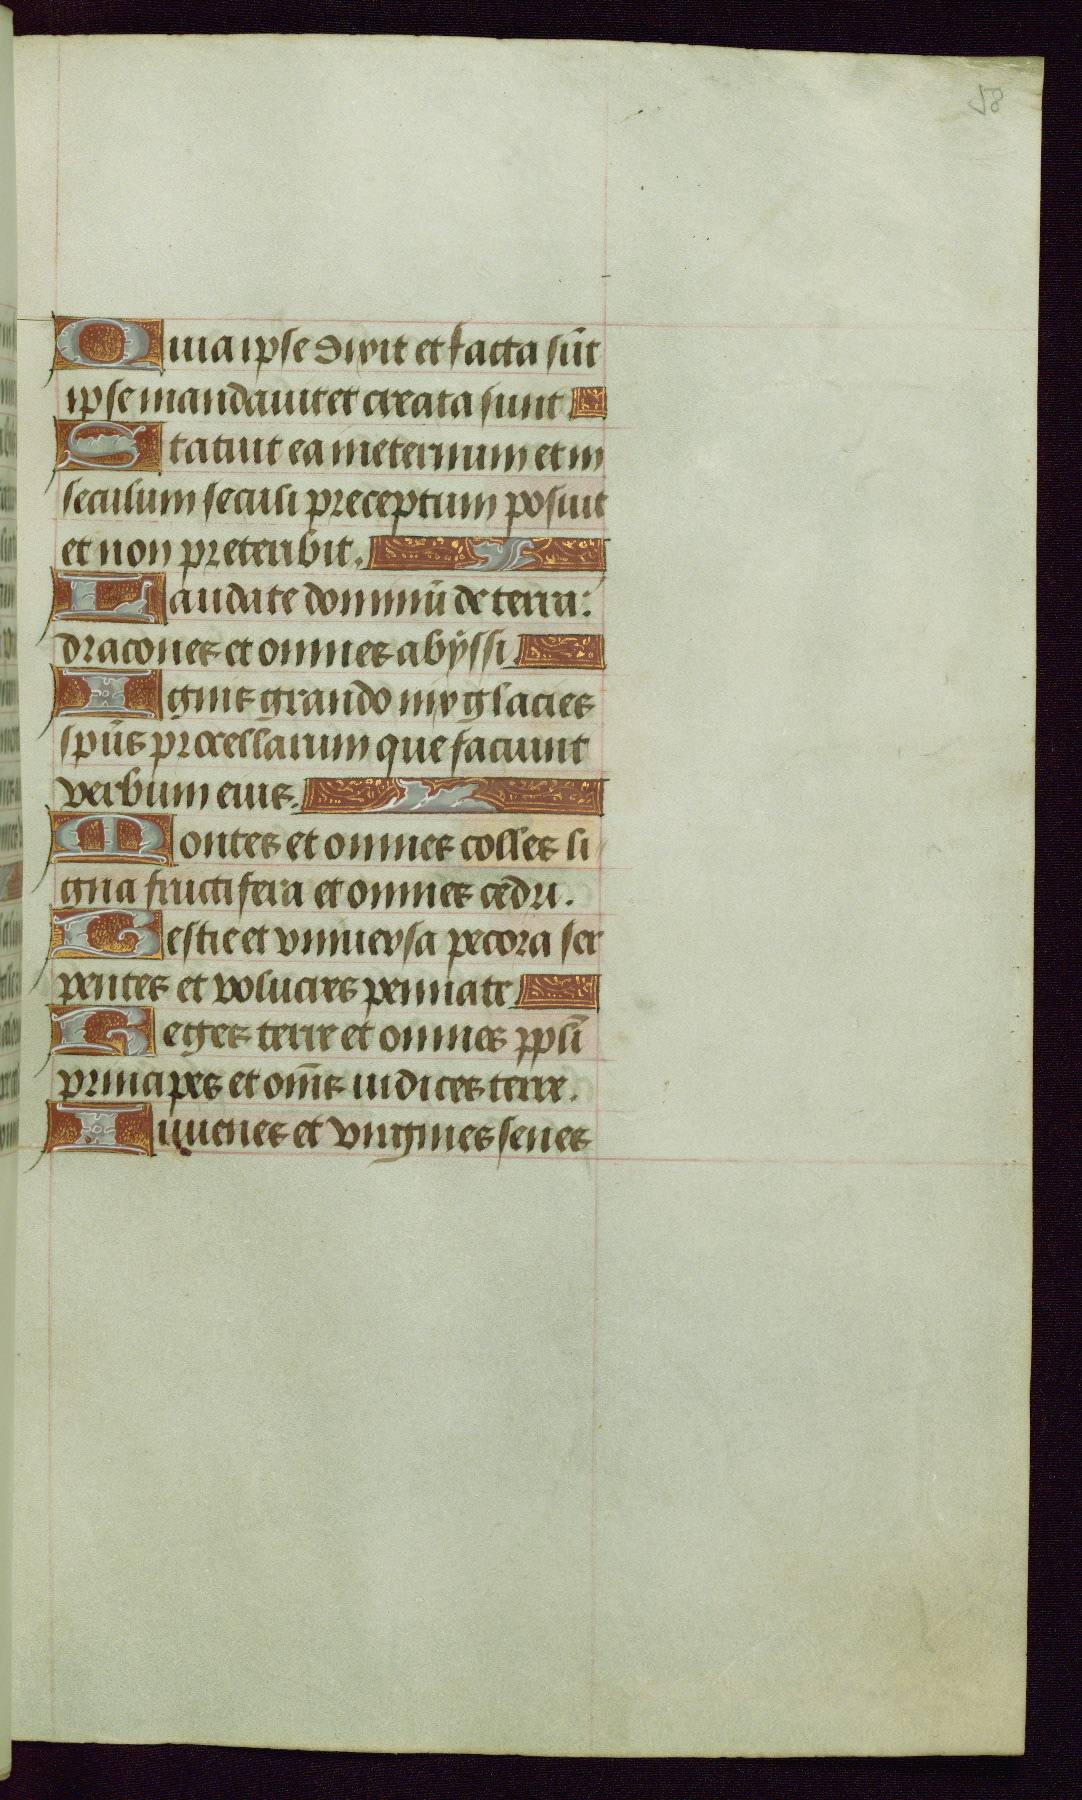 58
Quia ipse dixit et facta sūt
ipse mandavit et creata sunt
Statuit ea ineternum et in
seculum seculi preceptum posuit
et non preteribit.
Laudate dominū de terra:
dracones et omnes abÿssi.
Ignis grando nix glacies
spūs procellarum que faciunt
verbum eius.
Montes et omnes colles li
gna fructifera et omnes cedri.
Bestie et universa pecora ser
pentes et volucres pennate.
Reges terre et omnes ppli̅
principes et om̅s iudices terre.
Iuvenes et virgines senes